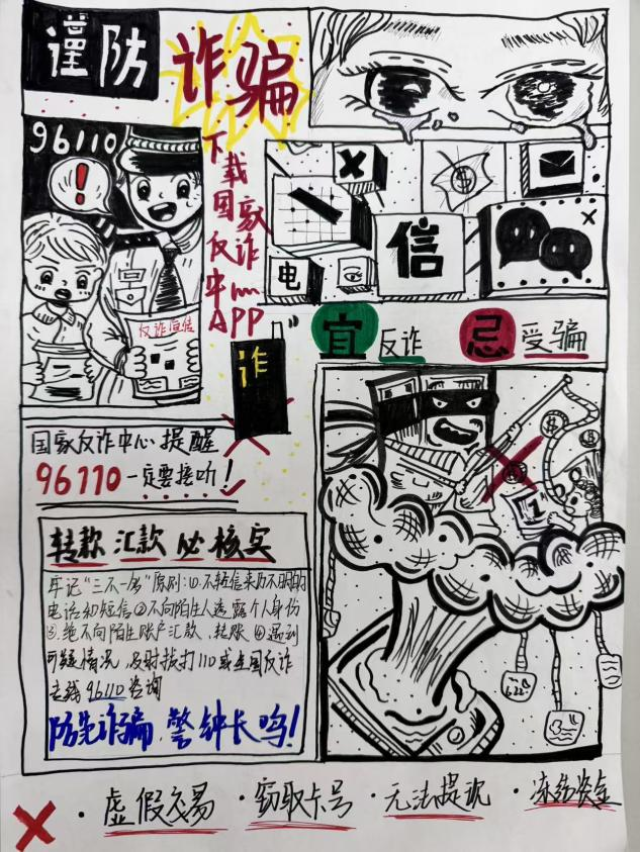 谨防
诈骗
96110
!
下载
国家
反诈
中心
APP
反诈宣传
$
×
信
电
诈
宜 反诈
忌 受骗
国家反诈中心提醒
96110一定要接听!
转款 汇款 必 核实
牢记“三不一多”原则:①.不轻信来历不明的
电话和短信②不向陌生人透露个人身份
③绝不向陌生账户汇款、转账 ④遇到
可疑情况,及时拨打110或全国反诈
专线96110咨询
防范诈骗 警钟长鸣!
·虚假交易 ·窃取卡号 ·无法提现 ·冻结资金